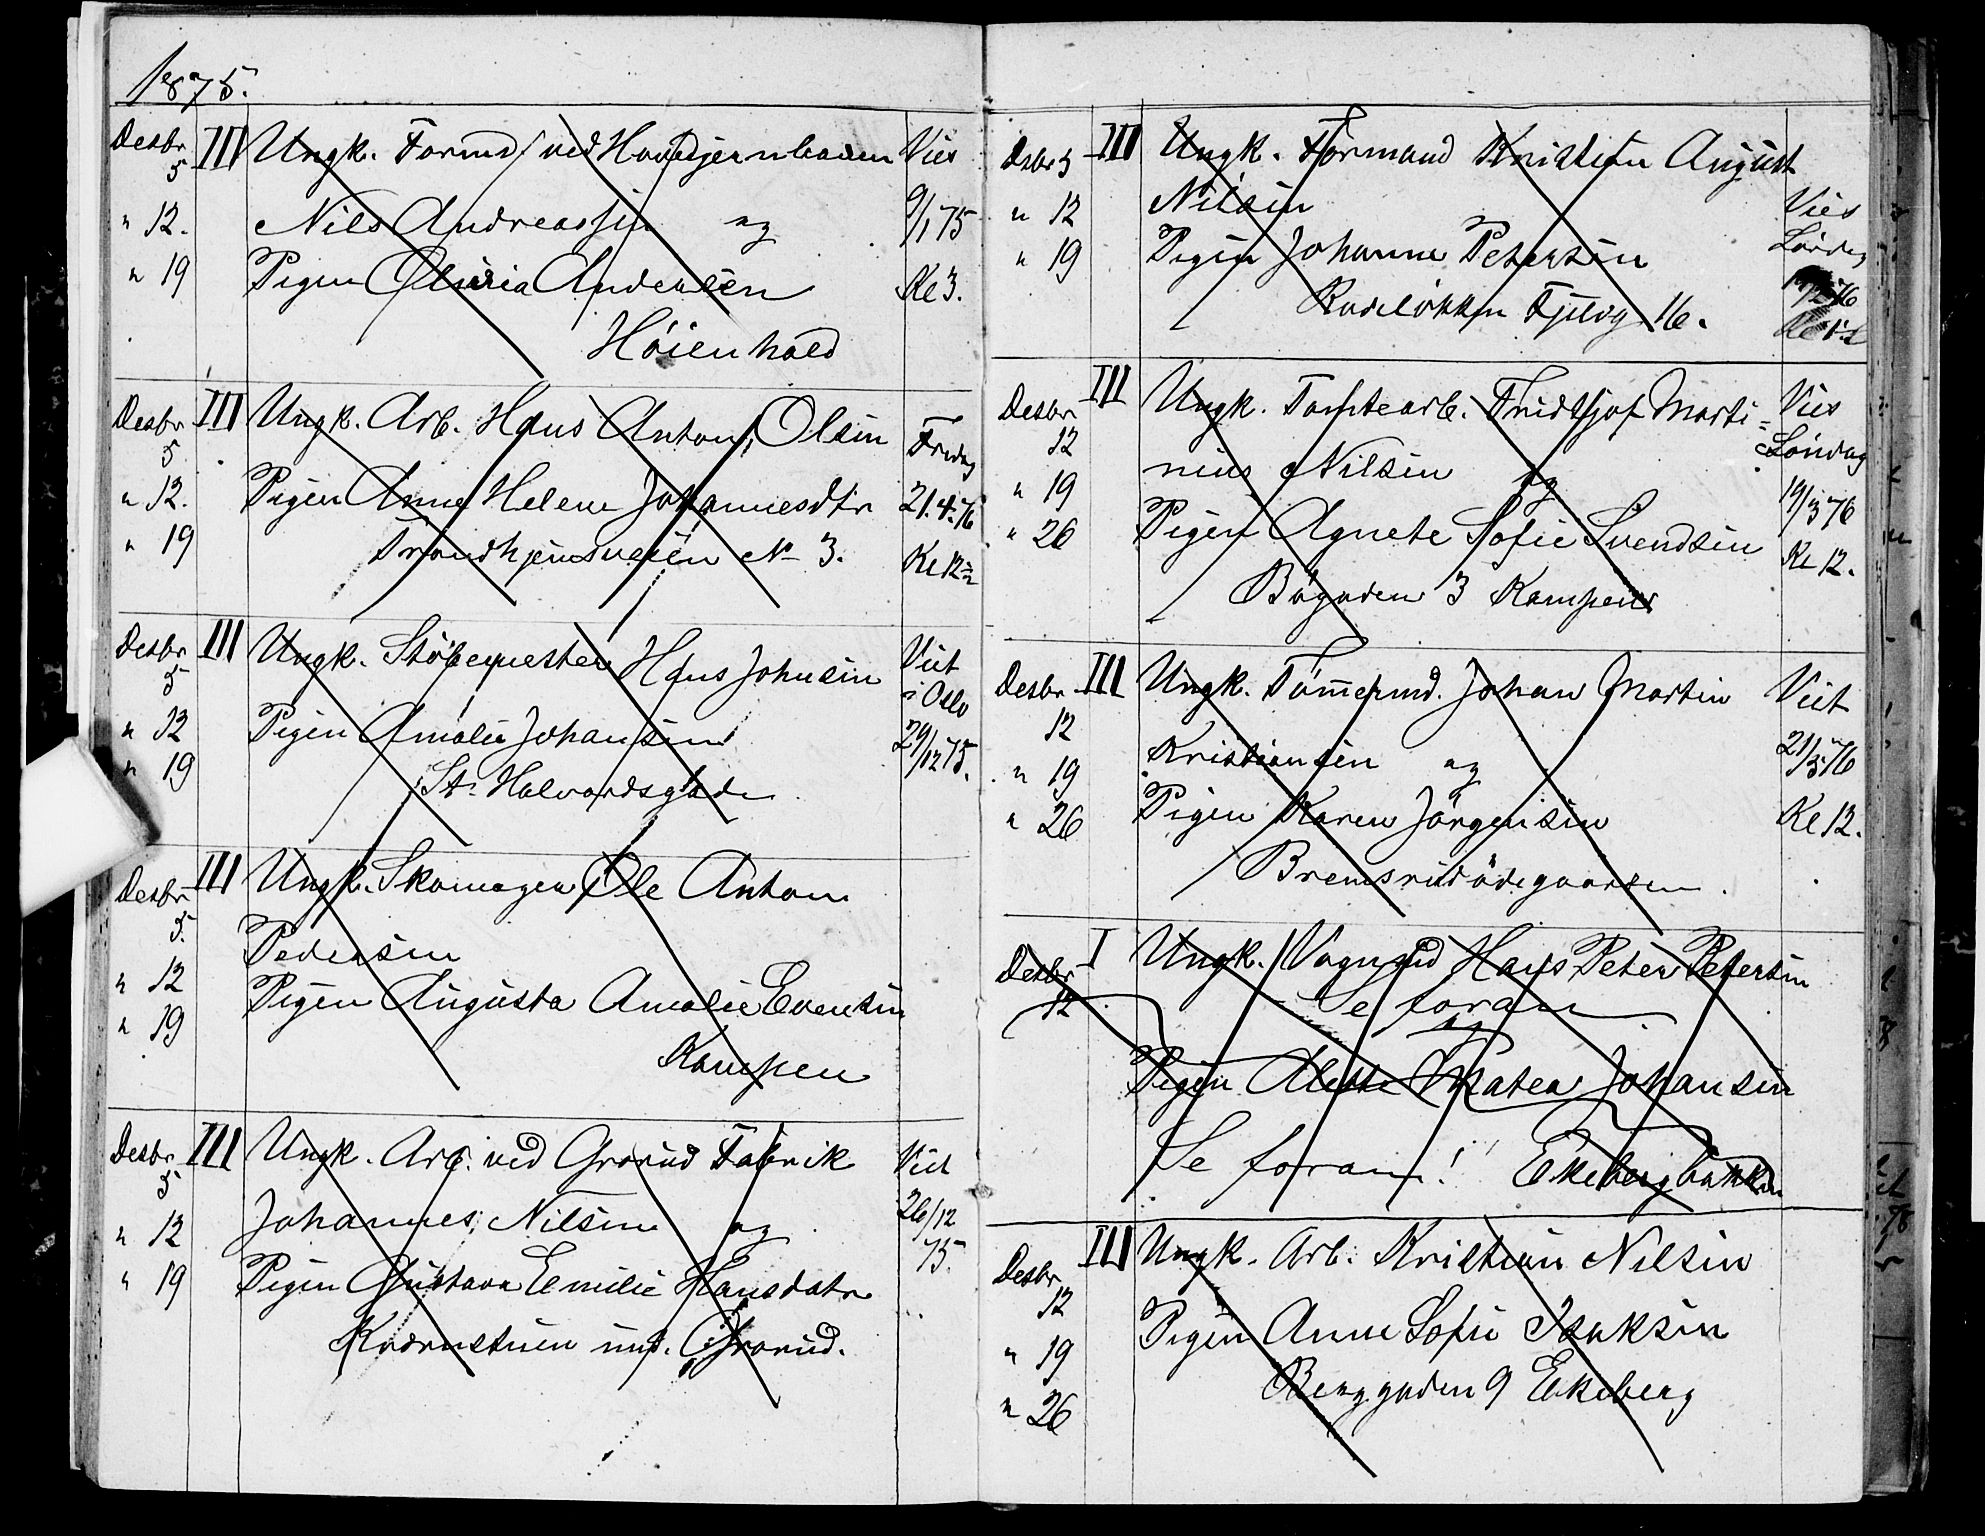 1875.
Desbr 5 III Ungk. Formd. ved Hovedjernbanen Vies
" 12. Nils Andreassen og 9/1 75
" 19 Pigen Andersen Kl 3.
Høienhald
Desbr 5 III Ungk. Arb. Hans Anton Olsen Fredag
" 12. Pigen Anne Helene Johannesdtr 21.4.76
" 19 Trondhjemsveien No 3. Kl 12
Desbr 5 III Ungk. Støbemester Hans Johnsen Viet i Oslo
" 12 Pigen Amalie Johansen 29/12 75.
" 19 St. Halvardsgade
Desbr 5. III Ungk. Skomager Ole Anton
Pedersen
" 12 Pigen Augusta Amalie Evensen
" 19 Kampen
Desbr 5 III Ungk. Arb. ved Grorud Fabrik Viet
" 12 Johannes Nilsen og 26/12
" 19 Pigen Gustava Emilie Hansdatr 75.
Kværnstuen und. Grorud.
Dsbr 5 III Ungk. Formand Kristian August
" 12 Nilsen Vies
" 19 Pigen Johanne Petersen Lørdag
Rodeløkken Fjeldg 16.
Desbr 12 III Ungk. Tomtearb. Fridtjof Marti= Vies
nius Nilsen og Søndag
" 19 19/3 76
" 26 Pigen Agnete Sofie Svendsen Kl 12.
Bøgaden 3 Kampen
Desbr 12 III Ungk. Tømmermd. Johan Martin Viet
" 19 Kristiansen og 21/5 76
" 26 Pigen Karen Jørgensen Kl 12.
Bremsrudødegaarden
Desbr 12 I Ungk. Vognmd Hans Peter Petersen
Se foran
og
Pigen Alette Matea Johansen
Se foran! Ekebergbakken
Desbr 12 III Ungk. Arb. Kristian Nilsen
" 19 Pigen Anne Sofie Isaksen
" 26 Berggaden 9 Ekeberg